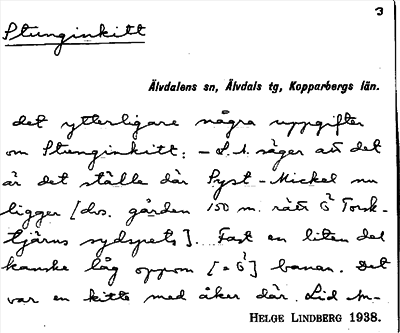 3
Stunginkitt
Älvdalens sn, Älvdals tg, Kopparbergs län.
det ytterligare några uppgifter
om Stunginkitt: – L.A. säger att det
är det ställe där Pyst-Mickel nu
ligger [dvs. gården 150 m. rätt Ö Torsk-
tjärns sydspets]. Fast en liten del
kanske låg oppom [= Ö] banan. Det
var en kitte med åker där. Lid
HELGE LINDBERG 1938.